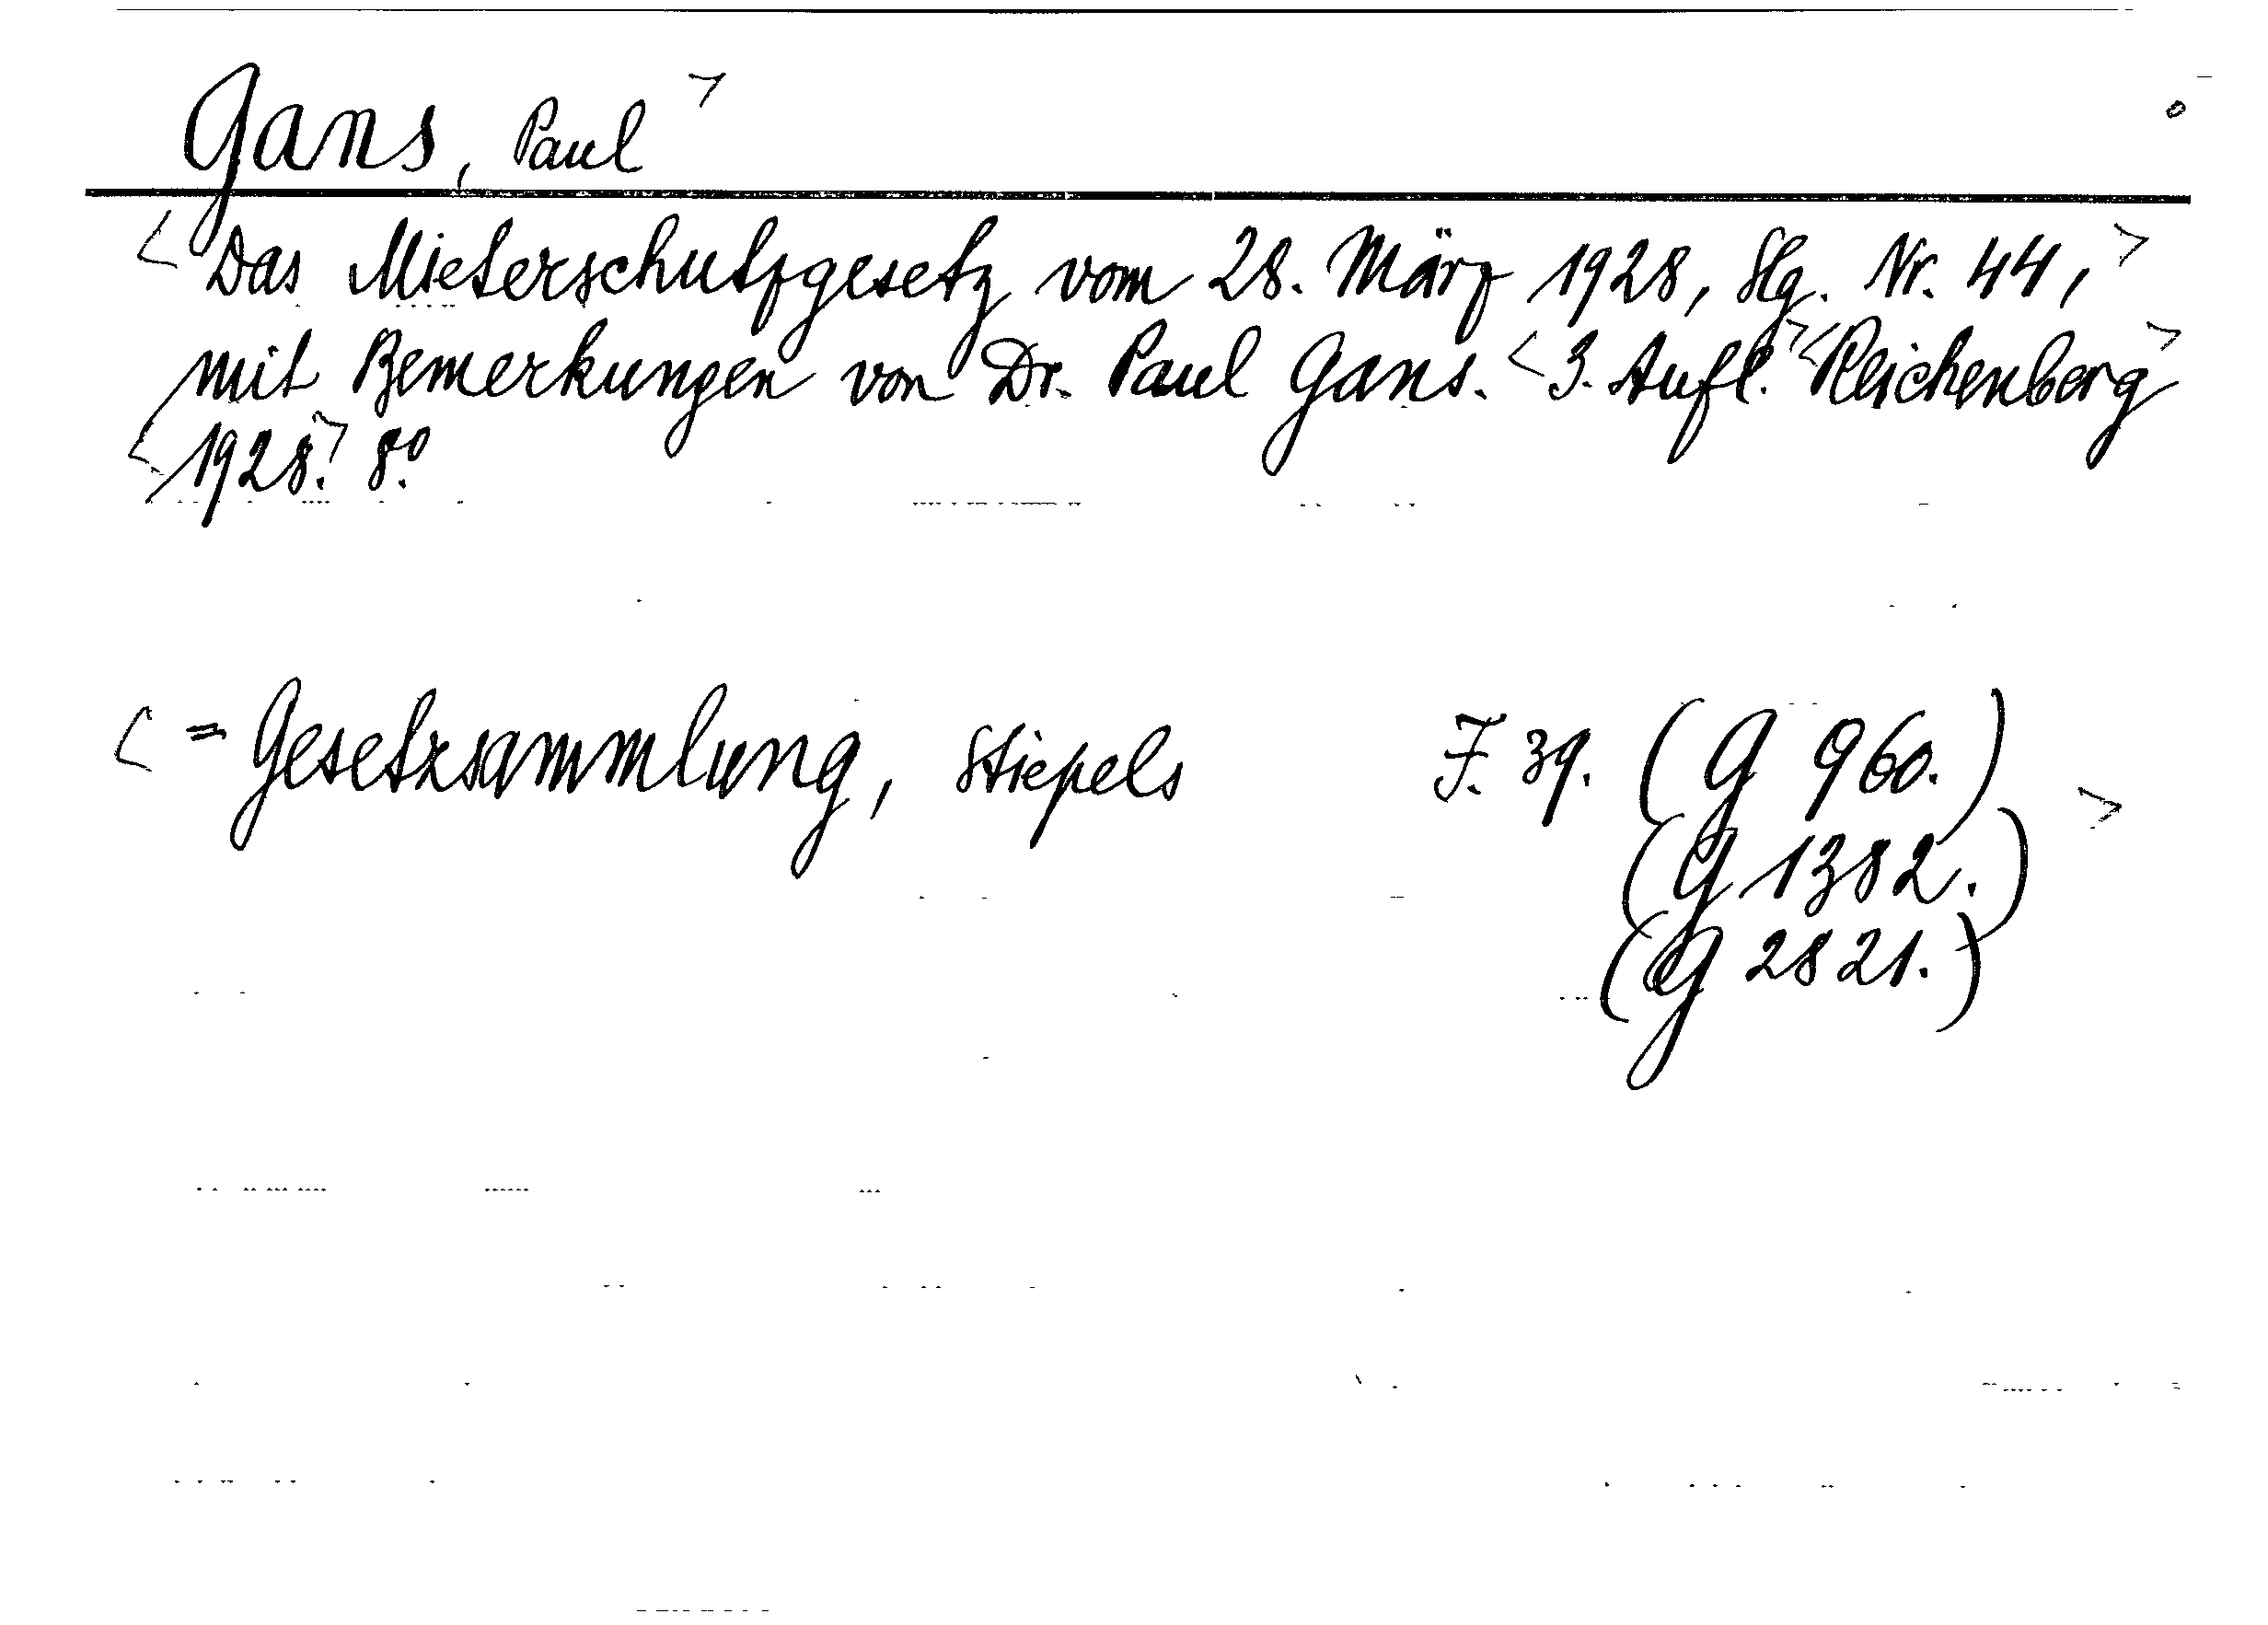 Gans, Paul >
< Das Mieterschutzgesetz vom 28. März 1928, Slg. Nr. 44, >
mit Bemerkungen von Dr. Paul Gans. < 3. Aufl. > < Reichenberg >
< 1928. > 8.°
< = Gesetzsammlung, Stiepels F. 39. (G 960.) >
(G 1382.)
(G 2821.)